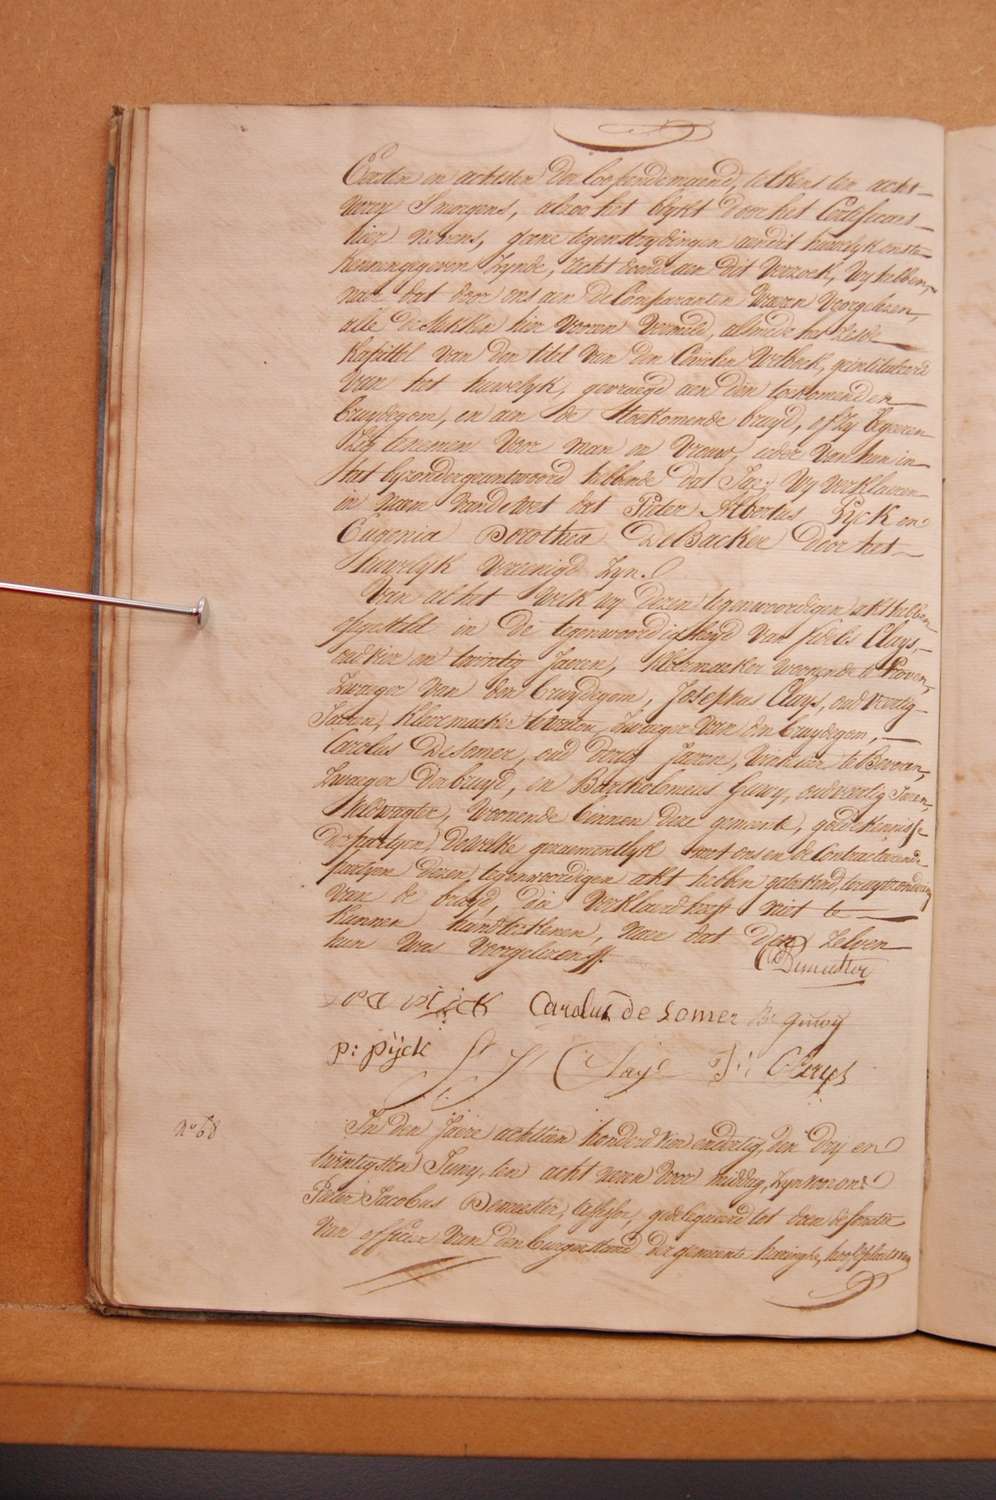 Eersten en achtsten der loopende maend, telkens ten acht
uren 's morgens, alzoo het blykt door het Certificaet
hier nevens, geene tegenstrydingen aen dit huwelyk ons te
kennengegeven zynde, recht doende aen dit verzoek, wy hebben,
naer dat door ons aen de Comparanten waren voorgelezen,
alle de stukken hier voren vermeld, alsmede het zesde
kapittel van den titel van den Civielen Wetboek, geintituleerd
van het huwelyk, gevraegd aen den toekomenden
bruydegom, en aen de toekomende bruyd, of zy begeeren
zig te nemen voor man en vrouw, ieder van hun in
het byzonder geantwoord hebbende dat Ja; Wy verklaeren
in naem van de wet dat Pieter Albertus Pyck en
Eugenia Dorothea DeBacker door het
Huwelyk vereenigd zyn.
Van al het welk wy dezen tegenwoordigen akt hebben
opgesteld in de tegenwoordigheyd van Fidelis Cluys,
oud vier en twintig Jaeren, kleermaeker woonende te Proven,
zwaeger van den bruydegom, Josephus Cluys, oud veertig
Jaeren, kleermaeker te zwaeger van den bruydegom,
Carolus Desomer, oud dertig Jaeren, werkman te Beveren,
zwaeger der bruyd, en Bartholomeus Guwy, oud veertig Jaeren,
veldwagter, woonende binnen deze gemeente, goede kennisse
der partyen, dewelke gezaementlyk met ons en de Contracteerende
partyen dezen tegenwoordigen akt hebben geteekend, uytgezonderd
van de bruyd, die verklaerd heeft niet te
kunnen handteekenen, naer dat den zelven
hun was voorgelezen.
Demeester
Carolus de somer B: Guwy
p: pijck Cluys F: Cluys
N.o 68
In den Jaere achtien honderd vier en dertig, den dry en
twintigsten Juny, ten acht uren voor middag, zyn voor ons
Pieter Jacobus Demeester, schepen, gedelegueerd tot doen de functie
van officier van den burgerstand der gemeente haeringhe, hoofdplaets van